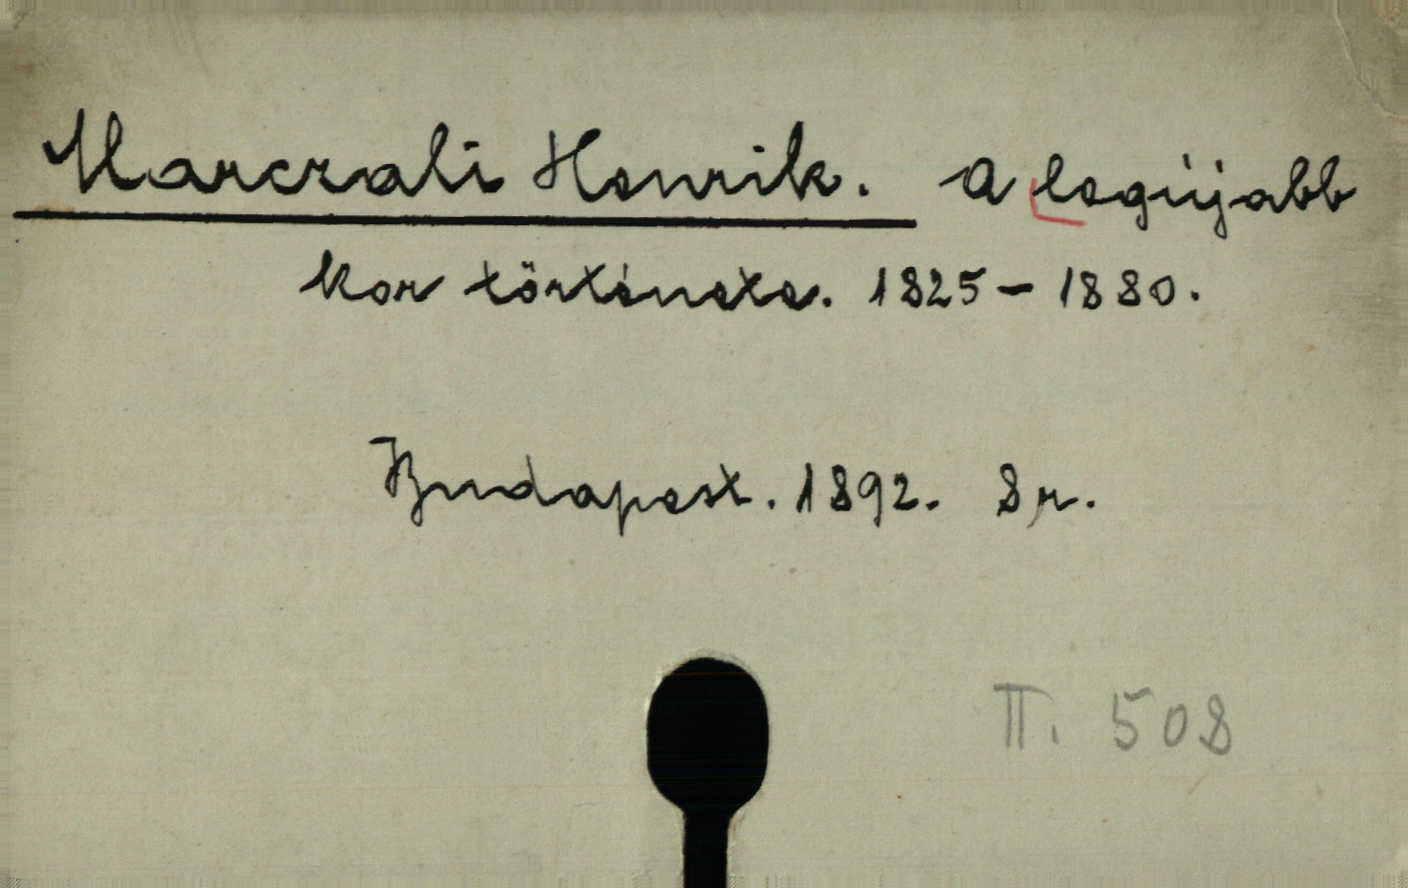 Marczali Henrik. A legújabb
kor története. 1825-1880.
Budapest. 1892. 8r.
II. 508